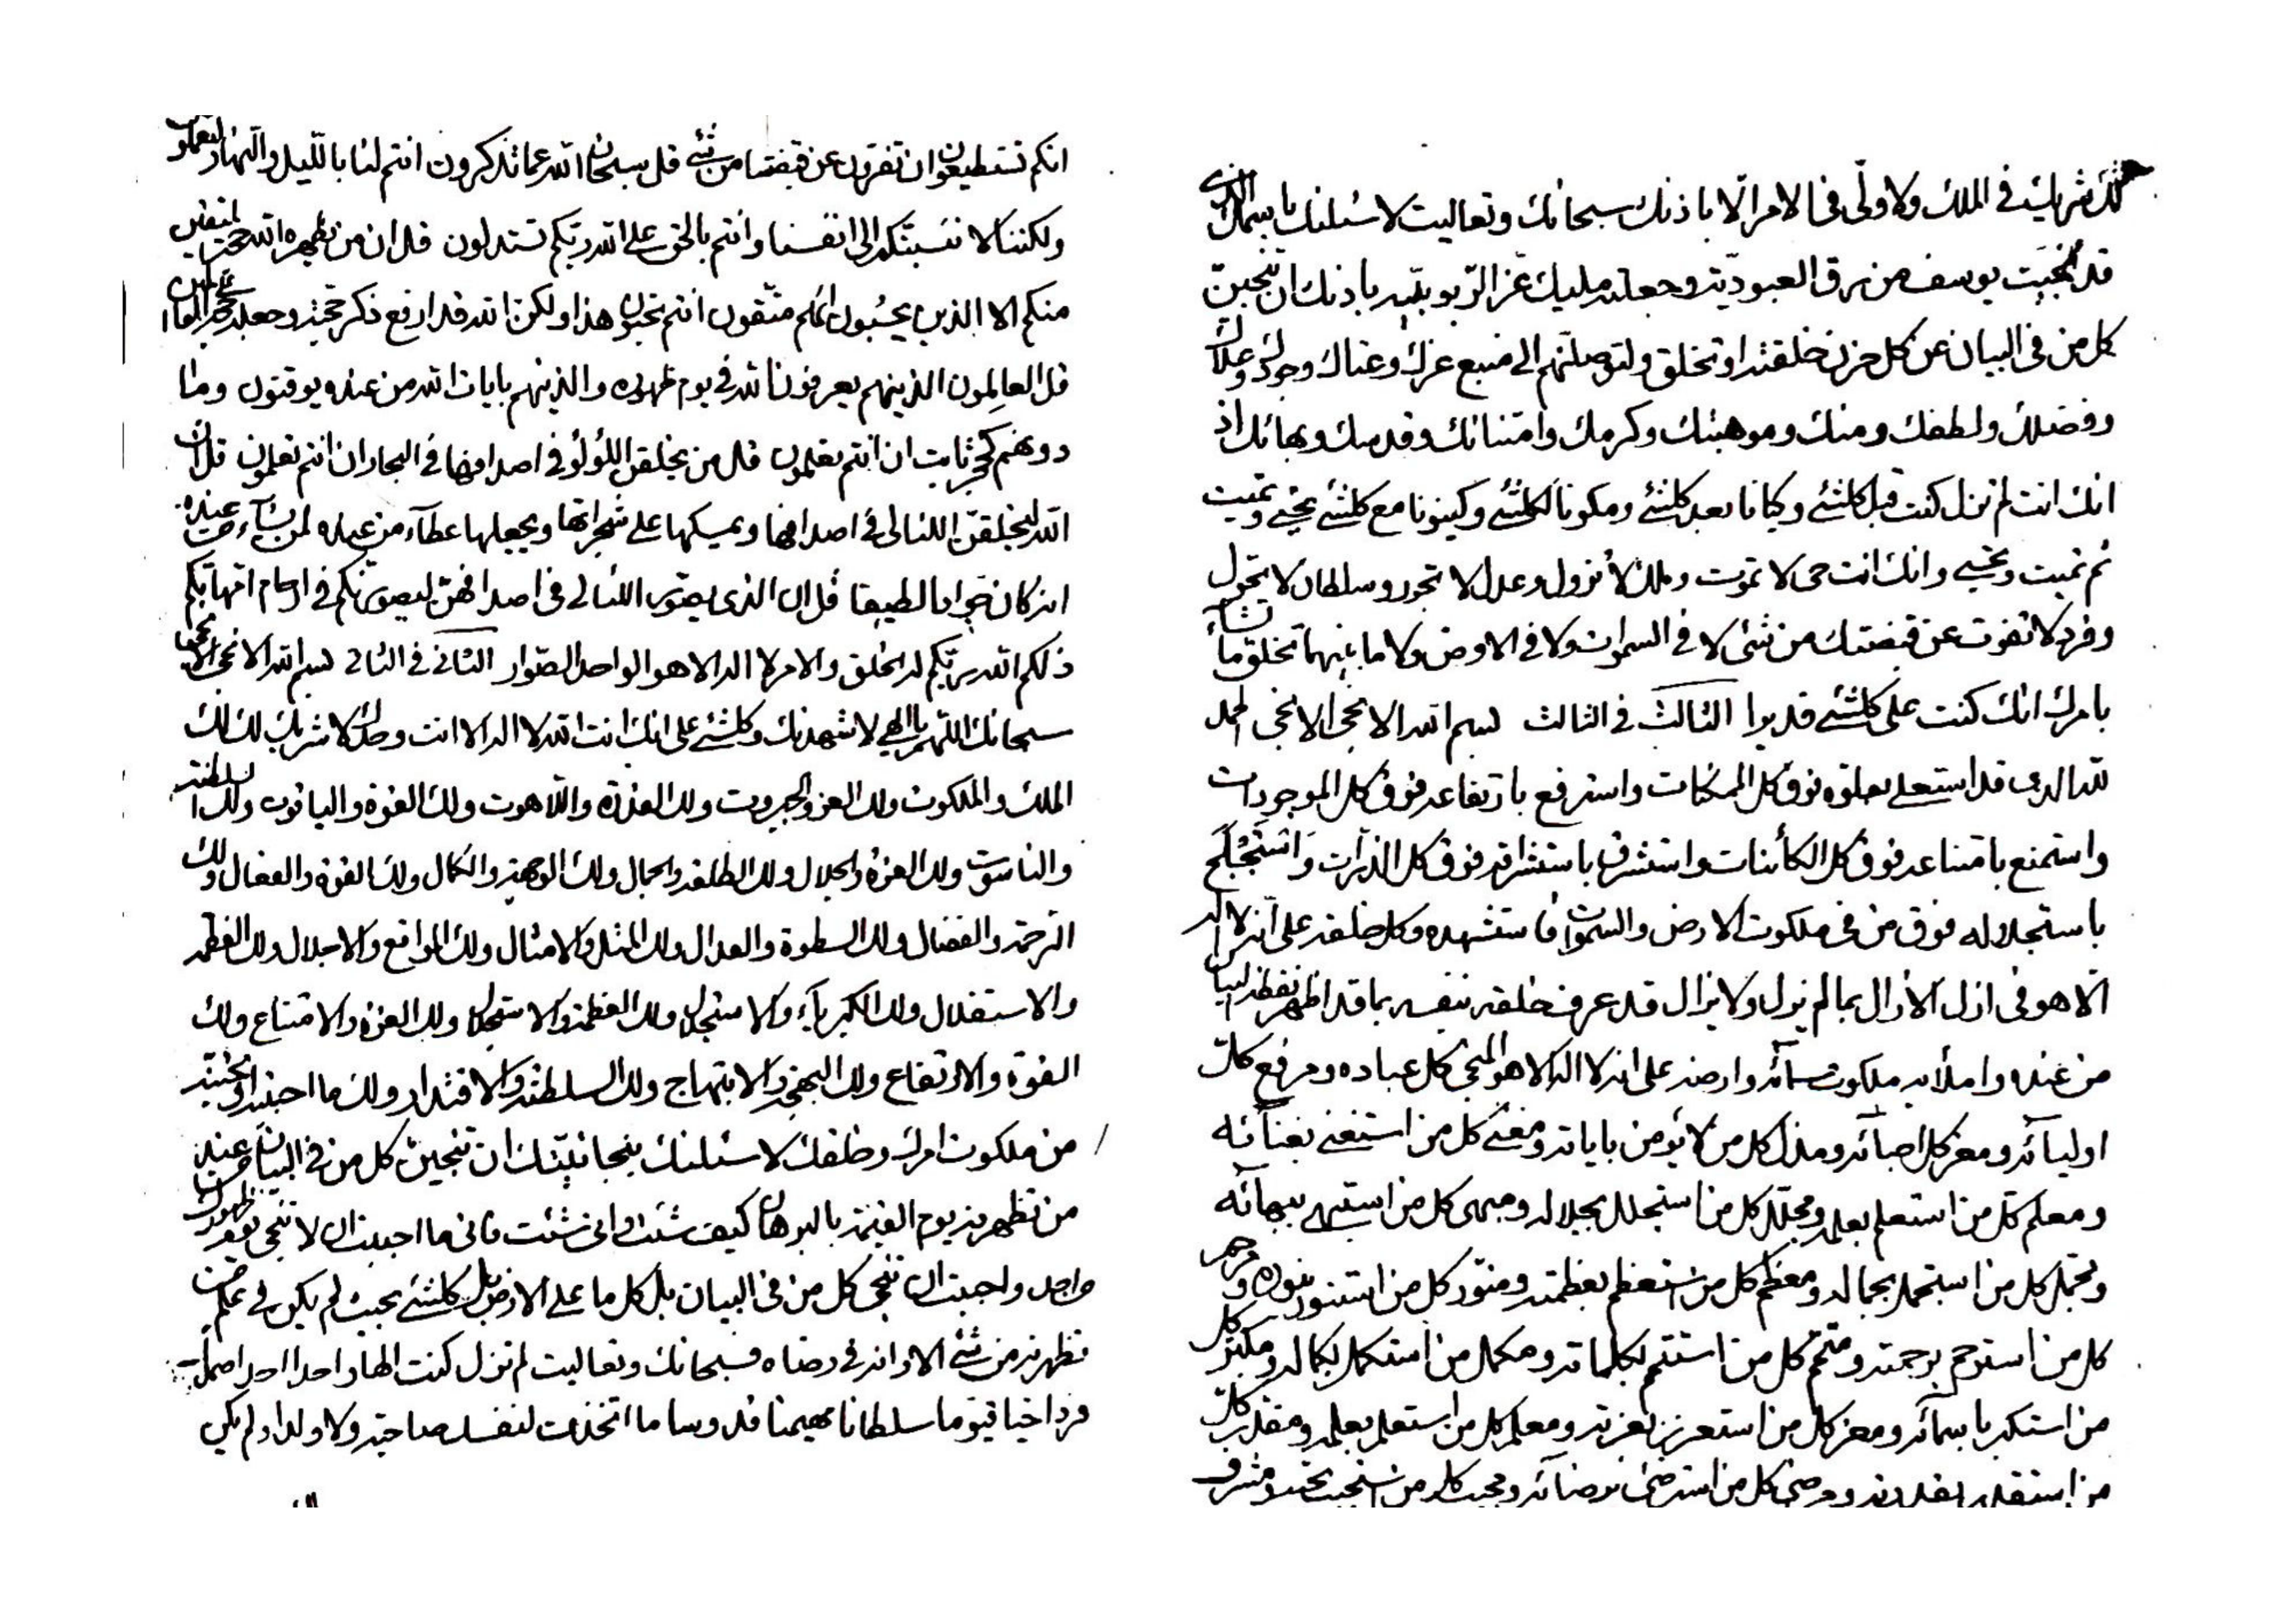 انكم تستطيعون ان تفرون عن قبضتنا من شئ قل سبحان الله عما تذكرون انتم لنا بالليل والنهار لتعملون
ولكننا لا ننسبنكم الى انفسنا وانتم بالحق على الله ربكم تستدلون قل ان من نظهره الله حجته
منكم الا الذين يحسبون انكم متقون انتم تحبون هذا ولكن الله قد ارفع ذكر حجته وجعله
قل العالمون الذينهم يعرفون الله في يوم ظهوره والذينهم بايات الله من عنده يوقنون وما
دونهم كحجر ثابت ان انتم تعلمون قل من يخلق اللؤلؤ في اصدافها في البحار ان انتم تعلمون قل ان
الله ليخلقن اللئالى في اصدافها ويمسكها على شجراتها ويجعلها عطآء من عنده لمن يشآء من عبيده
انه كان جوادا لطيفا قل ان الذى يصور اللئالى في اصدافهن ليصورنكم في ارحام امهاتكم
ذلكم الله ربكم له الخلق والامر لا اله الا هو الواحد الصوار الثانى في الثانى بسم الله الانجى الانجى
سبحانك اللهم يا الهى لاشهدنك وكلشئ على انك انت الله لا اله الا انت وحدك لا شريك لك لك
الملك والملكوت ولك العز والجبروت ولك القدرة واللاهوت ولك القوة والياقوت ولك السلطنة
والناسوت ولك العزة والجلال ولك الطلعة والجمال ولك الوجهة والكمال ولك القوة والفعال ولك
الرحمة والفضال ولك السطوة والعدال ولك المثل والامثال ولك المواقع والاجلال ولك العظمة
والاستقلال ولك الكبريآء والاستجلال ولك العظمة والاستجلال ولك العزة والامتناع ولك
القوة والارتفاع ولك البهجة والابتهاج ولك السلطنة والاقتدار ولك ما احببته او تحببنه
من ملكوت امرك وخلقك لاسئلنك بنجانيتك ان تنجين كل من في البيان عند
من تظهرنه يوم القيمة بالبرهان كيف شئت وانى شئت فانى ما احببت ان لا تنجى يوم ظهورك
واحد واحببت ان تنجى كل من في البيان بل كل ما على الارض بل كلشئ بحيث لم يكن في علم من
تظهرنه من شئ الا وانه في رضاه فسبحانك وتعاليت لم تزل كنت الها واحدا احدا صمدا
فردا حيا قيوما سلطانا مهيمنا قدوسا ما اتخذت لنفسك صاحبة ولا ولدا ولم يكن
لك شريك في الملك ولا ولى في الامر الا باذنك سبحانك وتعاليت لاسئلنك باسمك الذى
قد انجيت يوسف من رق العبودية وجعلته مليك عز الربوبية باذنك ان تنجين
كل من في البيان عن كل حزن خلقته او تخلق ولتوصلنهم الى منبع عزك وغناك وجودك وعلاك
وفضلك ولطفك ومنك وموهبتك وكرمك وامتنانك وقدسك وبهائك اذ
انك انت لم تزل كنت قبل كلشئ وكيانا بعد كلشئ ومكونا لكلشئ وكينونا مع كلشئ تحيى وتميت
ثم تميت وتحيى وانك انت حى لا تموت وملك لا تزول وعدل لا تجور وسلطان لا تحول
وفرد لا تفوت عن قبضتك من شئ لا في السموات ولا في الارض ولا ما بينهما تخلق ما تشآء
بامرك انك كنت على كلشئ قديرا الثالث في الثالث بسم الله الانجى الانجى الحمد
لله الذى قد استعلى بعلوه فوق كل الممكنات واسترفع بارتفاعه فوق كل الموجودات
واستمنع بامتناعه فوق كل الكائنات واستشرف باستشرافه فوق كل الذرات واستجلل
باستجلاله فوق من في ملكوت الارض والسموات فاستشهده وكل خلقه على انه لا اله
الا هو في ازل الازال بما لم يزل ولا يزال قد عرف خلقه نفسه بما قد اظهر نقطة البيان
من عنده واملأ به ملكوت سمآئه وارضه على انه لا اله الا هو المنجى كل عباده ومرفع كل
اوليآئه ومعز كل احبآئه ومذل كل من لا يؤمن باياته ومغنى كل من استغنى بغنآئه
ومعلم كل من استعلم بعلمه ومجلل كل من استجلل بجلاله ومبهى كل من استبهى ببهآئه
ومجمل كل من استجمل بجماله ومعظم كل من استعظم بعظمته ومنور كل من استنور بنوره ومرحم
كل من استرحم برحمته ومتمم كل من استتم بكلماته ومكمل من استكمل بكماله ومكبر كل
من استكبر باسمآئه ومعزز كل من استعزز بعزته ومعلم كل من استعلم بعلمه ومقدر كل
من استقدر بقدرته ومرضى كل من استرضى برضآئه ومحبب كل من استحبب بحبه ومشرف